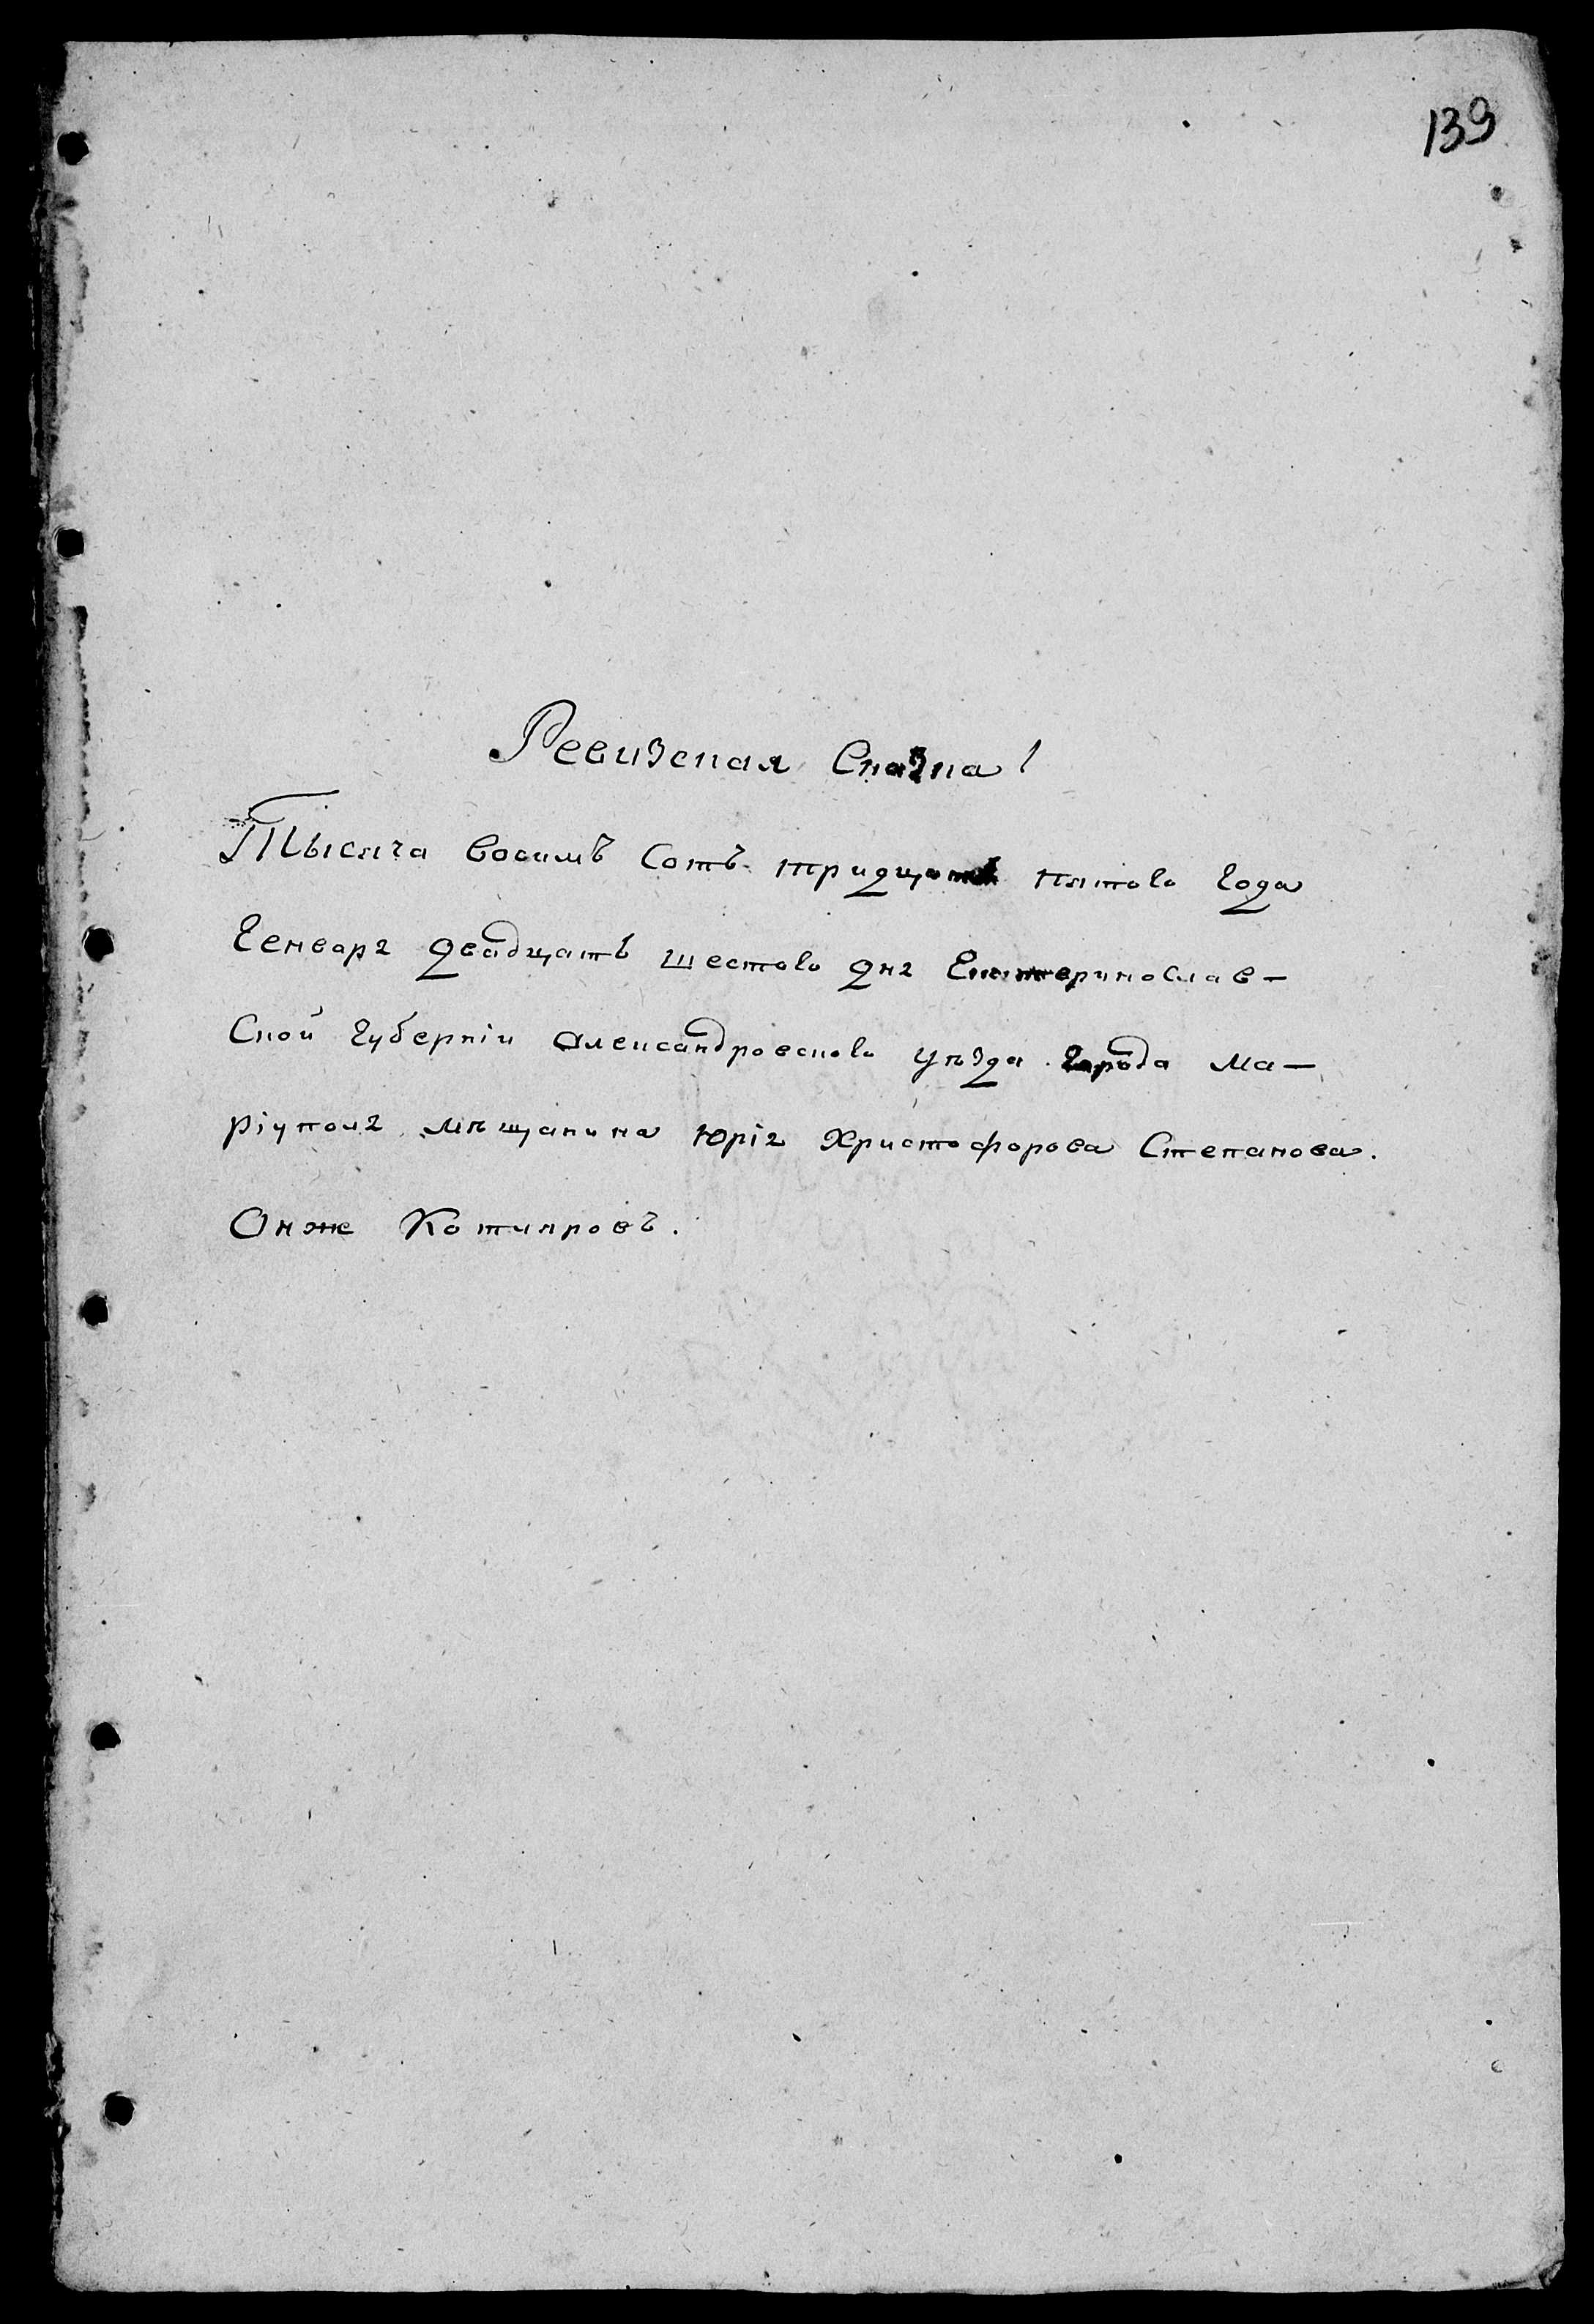 139
Ревизская Сказка
Тысяча восимъ сотъ тридцать пятого года
Генваря двадцать шестого дня Екатеринослав-
ской Губерніи Александровского уѣзда города Ма-
ріуполя мѣщанина Юрія Христофорова Степанова.
Онже Котляровъ.